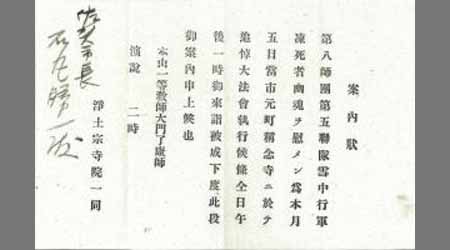 案內狀
第八師團第五聯隊雪中行軍
凍死者幽魂ヲ慰メン爲本月
五日當市元町稱念寺ニ於テ
追悼大法會執行候條全日午
後一時御來詣被成下度此段
御案內申上候也
本山一等敎師大門了康師
演說 二時
淨土宗寺院一同
市長